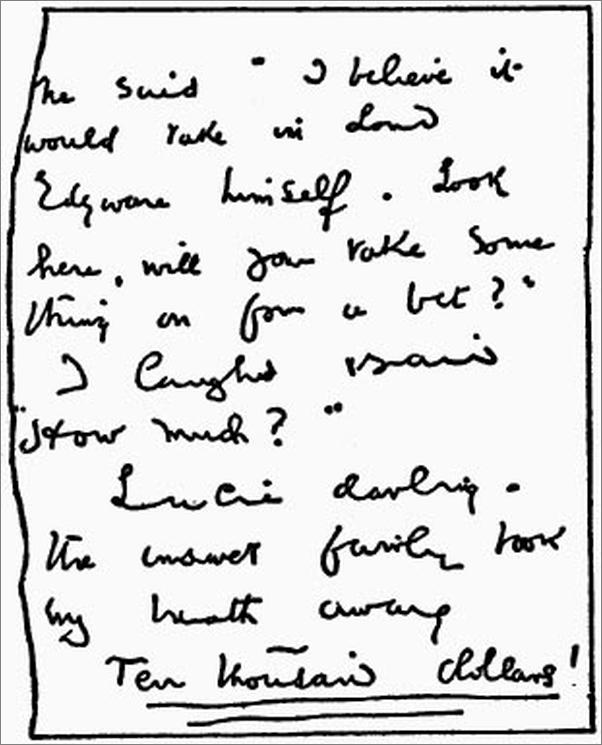 he said " I believe it
would take in Lord
Edgware himself. Look
here, will you take some
thing on for a bet? "
I laughed and said
"How much? "
Lucie darling.
the answer fairly took
my breath away
Ten thousand dollars!